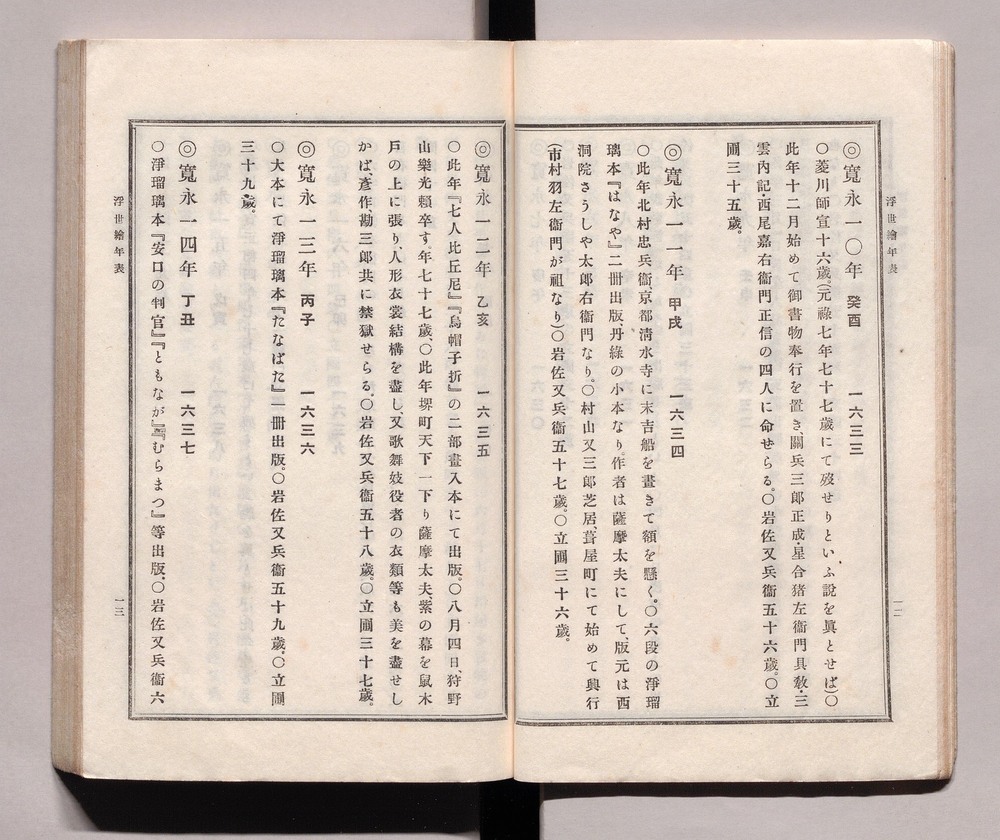 浮世繪年表
◎寬永一〇年 癸酉 一六三三
〇菱川師宣十六歲。(元祿七年七十七歲にて歿せりといふ說を眞とせば)〇
此年十二月始めて御書物奉行を置き、關兵三郞正成・星合猪左衞門具敎・三
雲內記・西尾嘉右衞門正信の四人に命せらる。〇岩佐又兵衞五十六歲。〇立
圃三十五歲。
◎寬永一一年 甲戌 一六三四
〇此年北村忠兵衞京都淸水寺に末吉船を畫きて額を懸く。〇六段の淨瑠
璃本『はなや』二冊出版、丹綠の小本なり。作者は薩摩太夫にして、版元は西
洞院さうしや太郞右衞門なり。〇村山又三郞芝居、葺屋町にて始めて興行
(市村羽左衞門が祖なり)〇岩佐又兵衞五十七歲。〇立圃三十六歲。
一二
◎寬永一二年 乙亥 一六三五
〇此年『七人比丘尼』『烏帽子折』の二部畫入本にて出版。〇八月四日、狩野
山樂光賴卒す。年七十七歲、〇此年堺町天下一下り薩摩太夫、紫の幕を鼠木
戶の上に張り、人形衣裳結構を盡し、又歌舞妓役者の衣類等も美を盡せし
かば、彥作勘三郞共に禁獄せらる。〇岩佐又兵衞五十八歲。〇立圃三十七歲。
◎寬永一三年 丙子 一六三六
〇大本にて淨瑠璃本『たなばた』一冊出版。〇岩佐又兵衞五十九歲。〇立圃
三十九歲。
◎寬永一四年 丁丑 一六三七
〇淨瑠璃本『安口の判官』『ともなが』『むらまつ』等出版、〇岩佐又兵衞六
浮世繪年表
一三